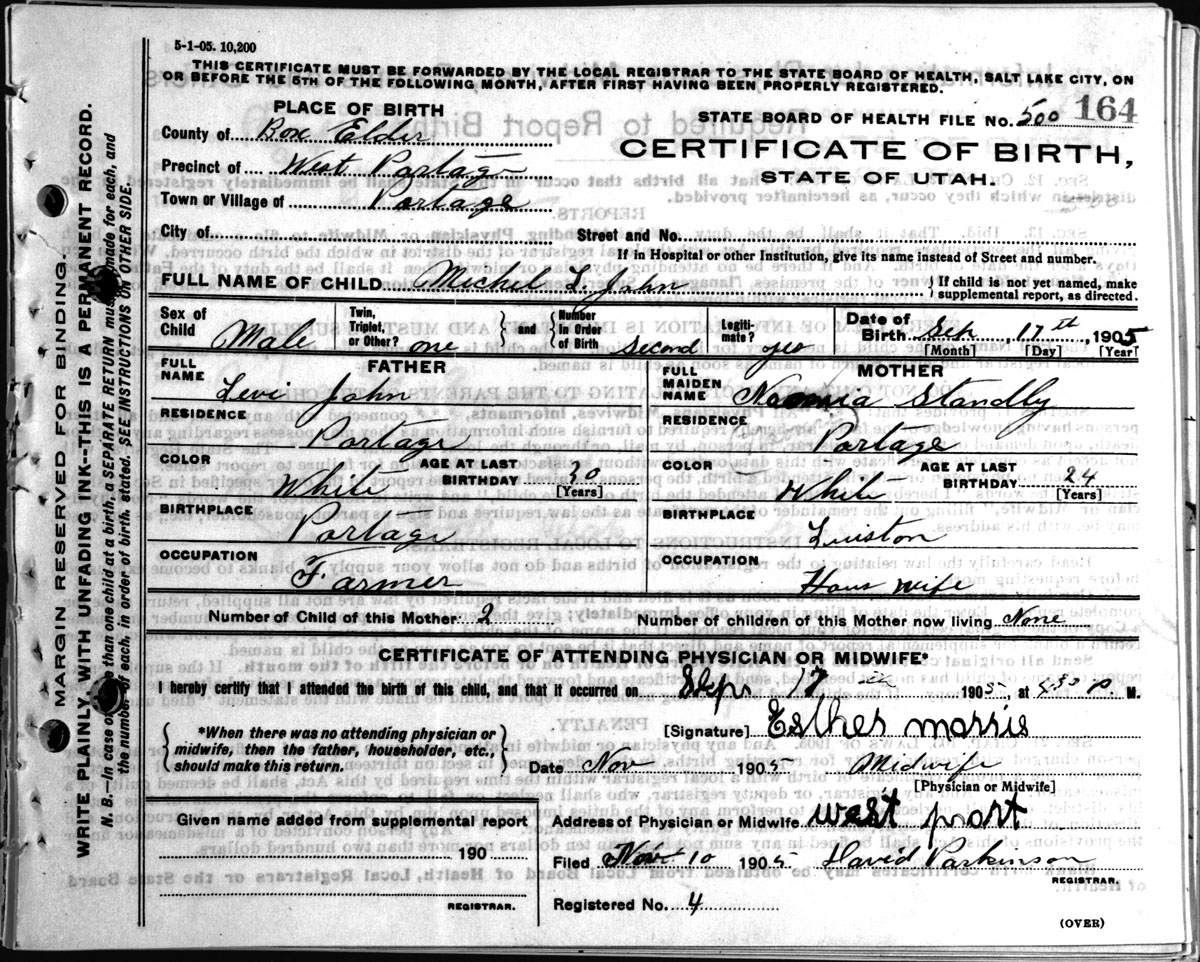 5-1-05. 10,200
THIS CERTIFICATE MUST BE FORWARDED BY THE LOCAL REGISTRAR TO THE STATE BOARD OF HEALTH, SALT LAKE CITY, ON
OR BEFORE THE 5TH OF THE FOLLOWING MONTH, AFTER FIRST HAVING BEEN PROPERLY REGISTERED.
PLACE OF BIRTH
STATE BOARD OF HEALTH FILE No. 500 164
County of Box Elder
CERTIFICATE OF BIRTH,
STATE OF UTAH.
Precinct of West Portage
Town or Village of Portage
City of Street and No.
If in Hospital or other Institution, give its name instead of Street and number.
FULL NAME OF CHILD Michel L. John { If child is not yet named, make
supplemental report, as directed.
Sex of Child Male Twin, Triplet, or Other? one } and { Number In Order of Birth Second Legiti-mate? yes Date of Birth Sep, 17th, 1905
[Month] [Day] [Year]
FATHER
FULL NAME Levi John
RESIDENCE Portage
COLOR White AGE AT LAST BIRTHDAY 30 [Years]
BIRTHPLACE Portage
OCCUPATION Farmer
MOTHER
FULL MAIDEN NAME Standby
RESIDENCE Portage
COLOR White AGE AT LAST BIRTHDAY 24 [Years]
BIRTHPLACE Luiston
OCCUPATION Hous wife
Number of Child of this Mother 2 Number of children of this Mother now living None
CERTIFICATE OF ATTENDING PHYSICIAN OR MIDWIFE*
I hereby certify that I attended the birth of this child, and that it occurred on Sept 17 1905 at P. M.
*When there was no attending physician or
midwife, then the father, householder, etc.,
should make this return.
[Signature] Esther morris
Date Nov 1905 Midwife
[Physician or Midwife]
Given name added from supplemental report
190
REGISTRAR.
Address of Physician or Midwife west port
Filed Nov 10 1905 David Parkinson
REGISTRAR.
Registered No. 4
(OVER)
MARGIN RESERVED FOR BINDING.
WRITE PLAINLY WITH UNFADING INK--THIS IS A PERMANENT RECORD.
N. B.--In case of more than one child at a birth, a SEPARATE RETURN must be made for each, and
the number of each, in order of birth, stated. SEE INSTRUCTIONS ON OTHER SIDE.